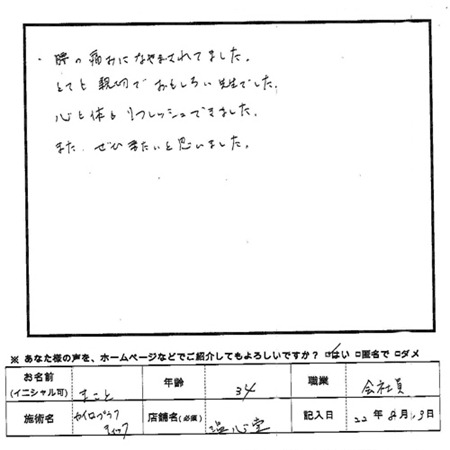 ・腰の痛みになやまされてました。
とても親切でおもしろい先生でした。
心と体もリフレッシュできました。
また ぜひ来たいと思いました。
※ あなた様の声を、ホームページなどでご紹介してもよろしいですか? ☑はい □匿名で □ダメ
お名前 (イニシャル可) まこと 年齢 34 職業 会社員
施術名 カイロプラクティック 店舗名(必須) 温心堂 記入日 22年8月13日